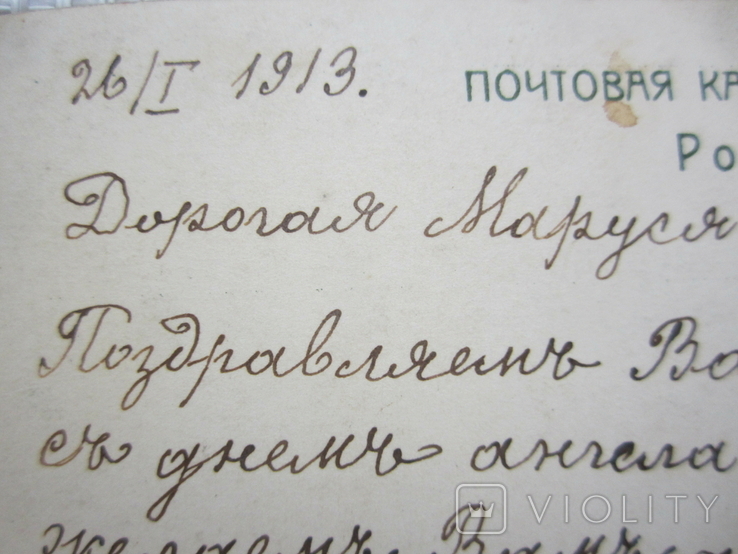 26/I 1913.
ПОЧТОВАЯ КА
Ро
Дорогая Маруся
Поздравляемъ Ва
съ днемъ ангела
желаемъ Вамъ
VIOLITY